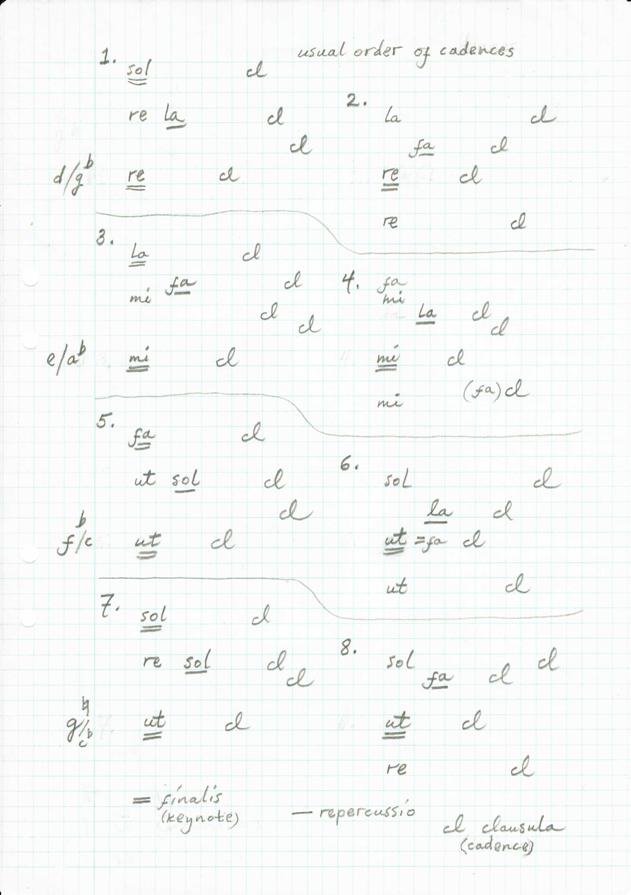 usual order of cadences
1. sol cl
re la cl
cl
d/g♭ re cl
2. la cl
fa cl
re cl
re cl
3. la cl
mi fa cl
cl
cl
e/a♭ mi cl
4. fa
mi
la cl
cl
mi cl
mi (fa) cl
5. fa cl
ut sol cl
cl
f/c♭ ut cl
6. sol cl
la cl
ut = fa cl
ut cl
7. sol cl
re sol cl
cl
g♮/c♭ ut cl
8. sol cl
fa cl
ut cl
re cl
= finalis
(keynote)
— repercussio
cl clausula
(cadence)